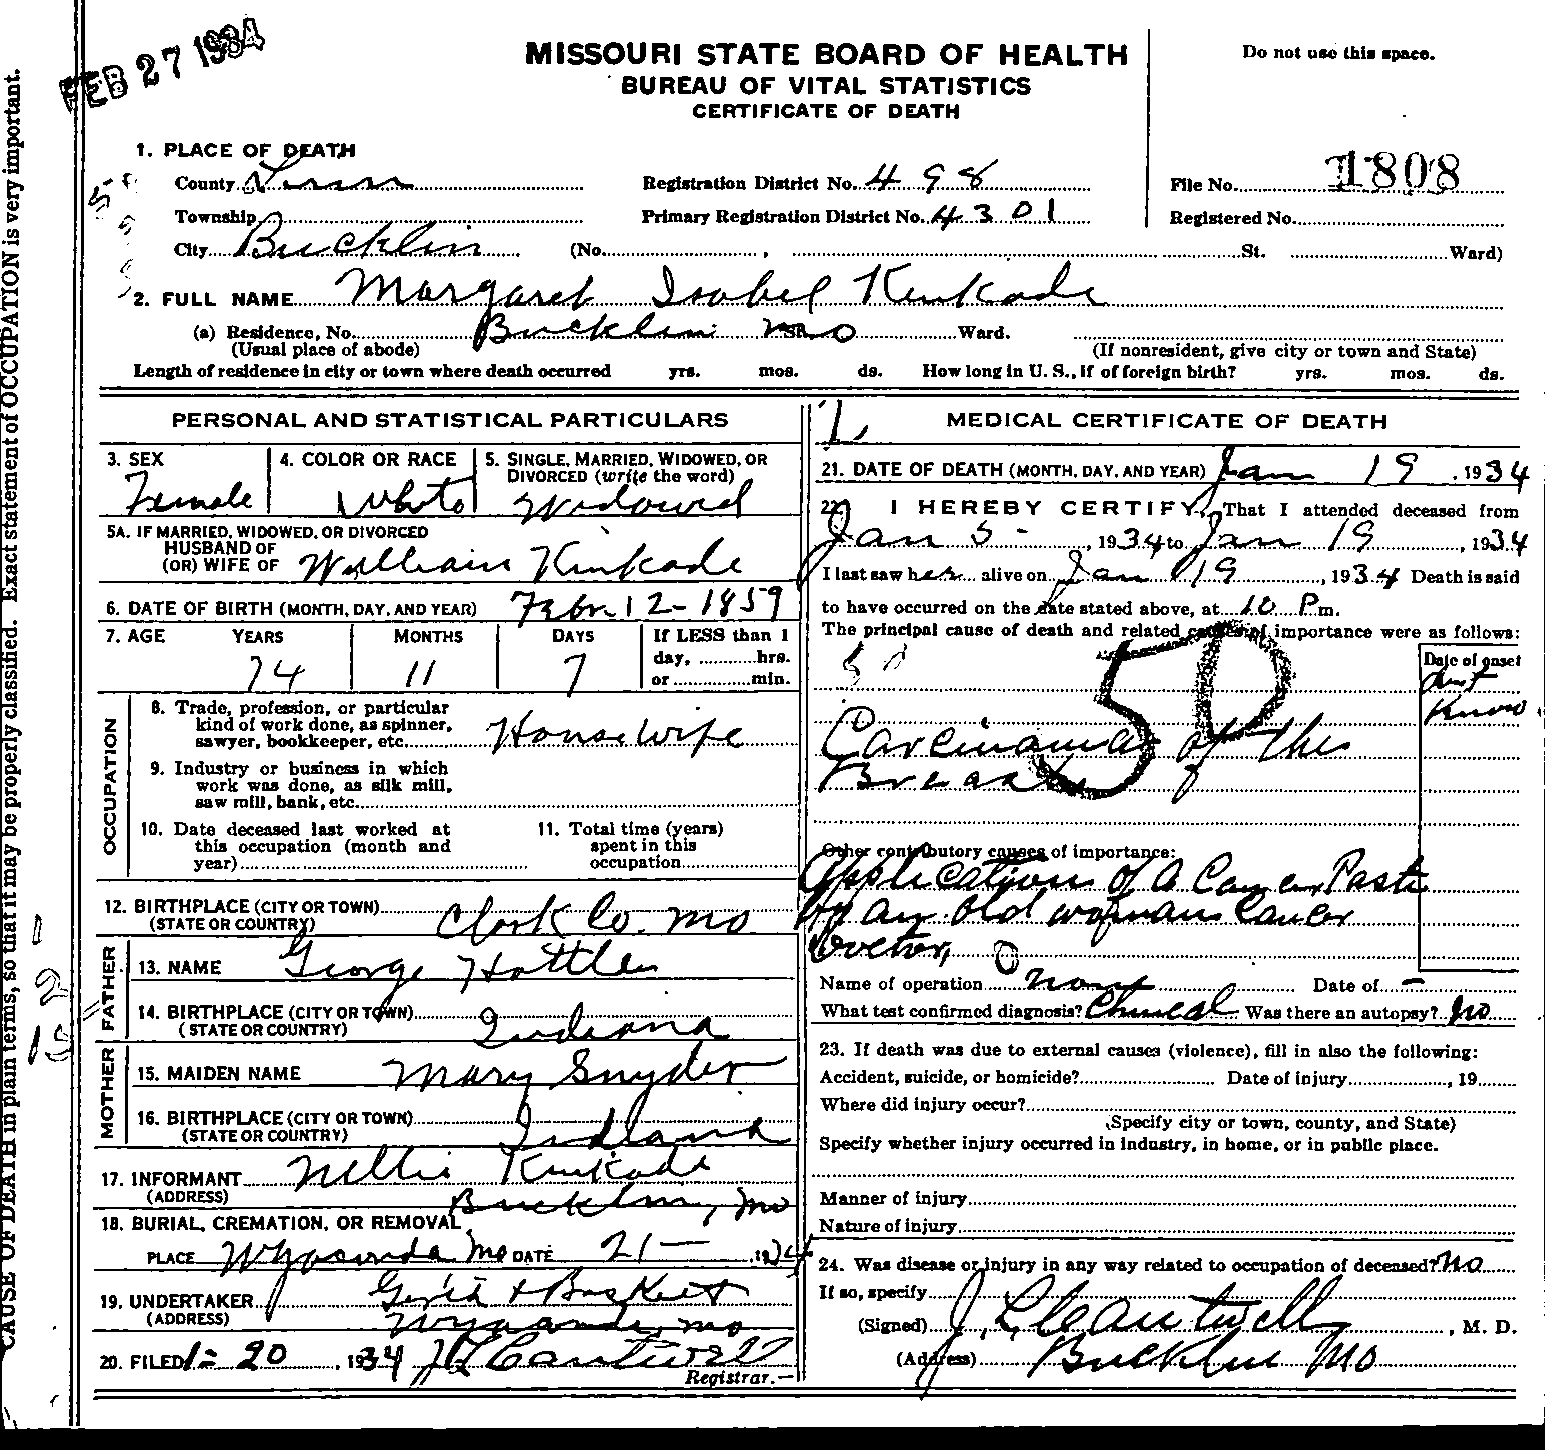 FEB 27 1934
MISSOURI STATE BOARD OF HEALTH
BUREAU OF VITAL STATISTICS
CERTIFICATE OF DEATH
Do not use this space.
1. PLACE OF DEATH
County Linn Registration District No. 498 File No. 1808
Township Primary Registration District No. 4301 Registered No.
City Bucklin (No. , St. Ward)
2. FULL NAME Margaret Isabel Kinkade
(a) Residence, No. Bucklin Mo St. Ward.
(Usual place of abode) (If nonresident, give city or town and State)
Length of residence in city or town where death occurred yrs. mos. ds. How long in U. S., if of foreign birth? yrs. mos. ds.
PERSONAL AND STATISTICAL PARTICULARS
3. SEX 4. COLOR OR RACE 5. SINGLE, MARRIED, WIDOWED, OR
DIVORCED (write the word)
Female White Widowed
5A. IF MARRIED, WIDOWED, OR DIVORCED
HUSBAND OF
(OR) WIFE OF William Kinkade
6. DATE OF BIRTH (MONTH, DAY, AND YEAR) Febr 12-1859
7. AGE YEARS MONTHS DAYS If LESS than 1
day, hrs.
or min.
74 11 7
OCCUPATION
8. Trade, profession, or particular
kind of work done, as spinner,
sawyer, bookkeeper, etc. House wife
9. Industry or business in which
work was done, as silk mill,
saw mill, bank, etc.
10. Date deceased last worked at
this occupation (month and
year)
11. Total time (years)
spent in this
occupation
12. BIRTHPLACE (CITY OR TOWN)
(STATE OR COUNTRY) Clark Co. Mo
FATHER
13. NAME George Hottle
14. BIRTHPLACE (CITY OR TOWN)
(STATE OR COUNTRY) Indiana
MOTHER
15. MAIDEN NAME Mary Snyder
16. BIRTHPLACE (CITY OR TOWN)
(STATE OR COUNTRY) Indiana
17. INFORMANT Nellie Kinkade
(ADDRESS) Bucklin, Mo
18. BURIAL, CREMATION, OR REMOVAL
PLACE Wyaconda Mo DATE 21- 1934
19. UNDERTAKER & Baskett
(ADDRESS) Wyaconda, Mo
20. FILED 1-20, 1934 JL Cantwell
Registrar.
MEDICAL CERTIFICATE OF DEATH
21. DATE OF DEATH (MONTH, DAY, AND YEAR) Jan 19, 1934
22. I HEREBY CERTIFY, That I attended deceased from
Jan 5-, 1934 to Jan 19, 1934
I last saw her alive on Jan 19, 1934 Death is said
to have occurred on the date stated above, at 10 P m.
The principal cause of death and related causes of importance were as follows:
50
Date of onset
dont
know
Carcinoma of the
Breast
Other contributory causes of importance:
Application of a Cancer Paste
by an old womans Cancer
Doctor,
Name of operation none Date of -
What test confirmed diagnosis? Clinical Was there an autopsy? no
23. If death was due to external causes (violence), fill in also the following:
Accident, suicide, or homicide? Date of injury , 19
Where did injury occur?
(Specify city or town, county, and State)
Specify whether injury occurred in industry, in home, or in public place.
Manner of injury
Nature of injury
24. Was disease or injury in any way related to occupation of deceased? no
If so, specify
(Signed) J. L. Cantwell, M. D.
(Address) Bucklin Mo
CAUSE OF DEATH in plain terms, so that it may be properly classified. Exact statement of OCCUPATION is very important.